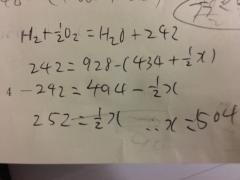 H₂+½O₂=H₂O+242
242=928-(434+½x)
-242=494-½x
252=½x ∴x=504